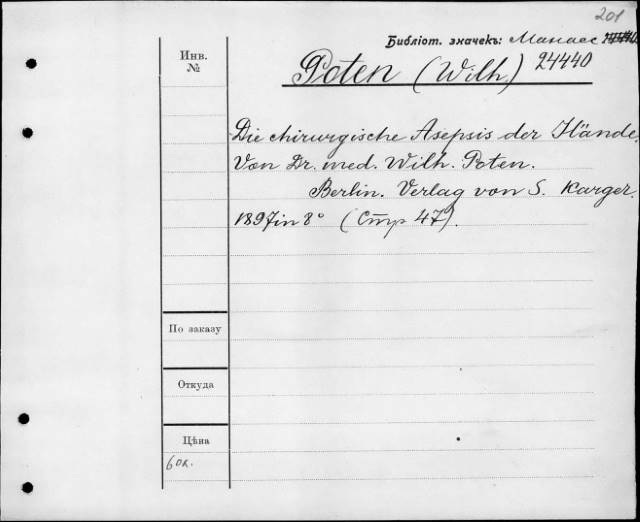 201
Библіот. значекъ: Манасс
24440
Инв.
№
Poten (Wilh)
Die chirurgische Asepsis der Hände.
Von Dr. med. Wilh. Poten.
Berlin. Verlag von S. Karger.
1897 in 8° (Стр 47).
По заказу
Откуда
Цѣна
60к.